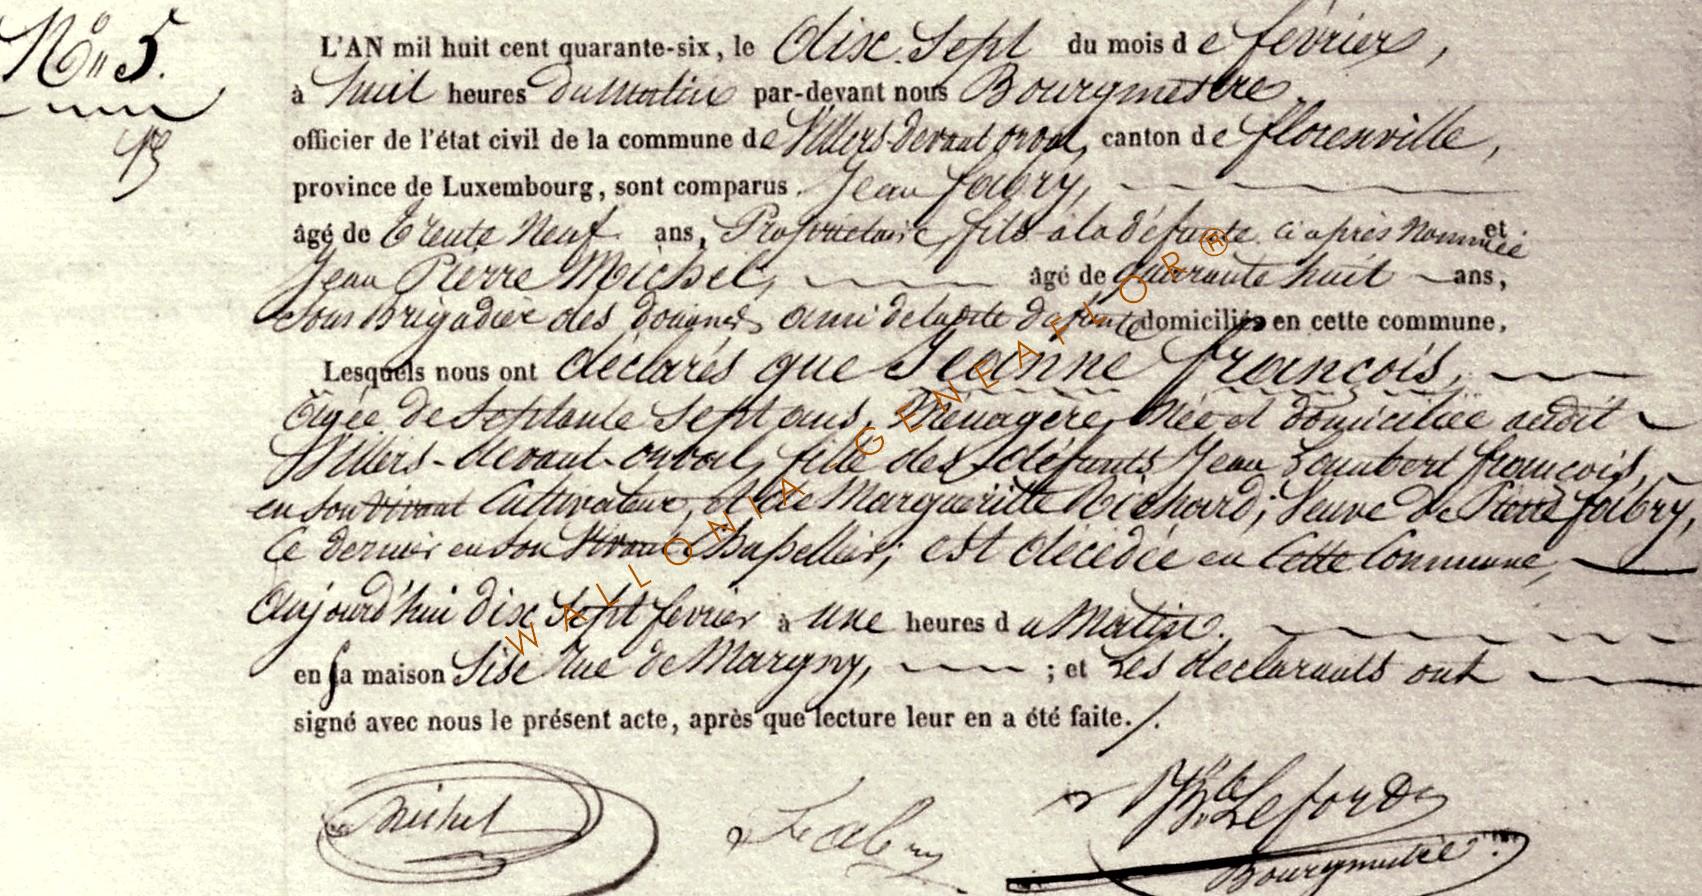 N° 5.
L'AN mil huit cent quarante-six, le dix Sept du mois de février,
à huit heures du Matin par-devant nous Bourgmestre
officier de l'état civil de la commune de Villers-devant-orval, canton de florenville,
province de Luxembourg, sont comparus Jean fabry,
âgé de Trente Neuf ans, Propriétaire, fils à la défunte ci après Nommée et
Jean Pierre Michel, âgé de quarante huit ans,
Sous Brigadier des douanes ami de la dite défunte domiciliés en cette commune,
Lesquels nous ont déclarés que Jeanne françois,
Agée de Septante Sept ans, Ménagère, Née et domiciliée audit
Villers-devant-orval, fille des défunts Jean Lambert françois,
en son vivant Cultivateur, et de Margueritte Richard; Veuve de Pierre fabry,
Ce dernier en son Vivant Chapellier; est décédée en Cette Commune,
Aujourd'hui dix Sept fevrier à une heures du Matin.
en sa maison Sise rue de Margny, ; et Les declarants ont
signé avec nous le présent acte, après que lecture leur en a été faite./.
Michel Fabry Leford
Bourgmestre
WALLONIA GENEAFLOR®